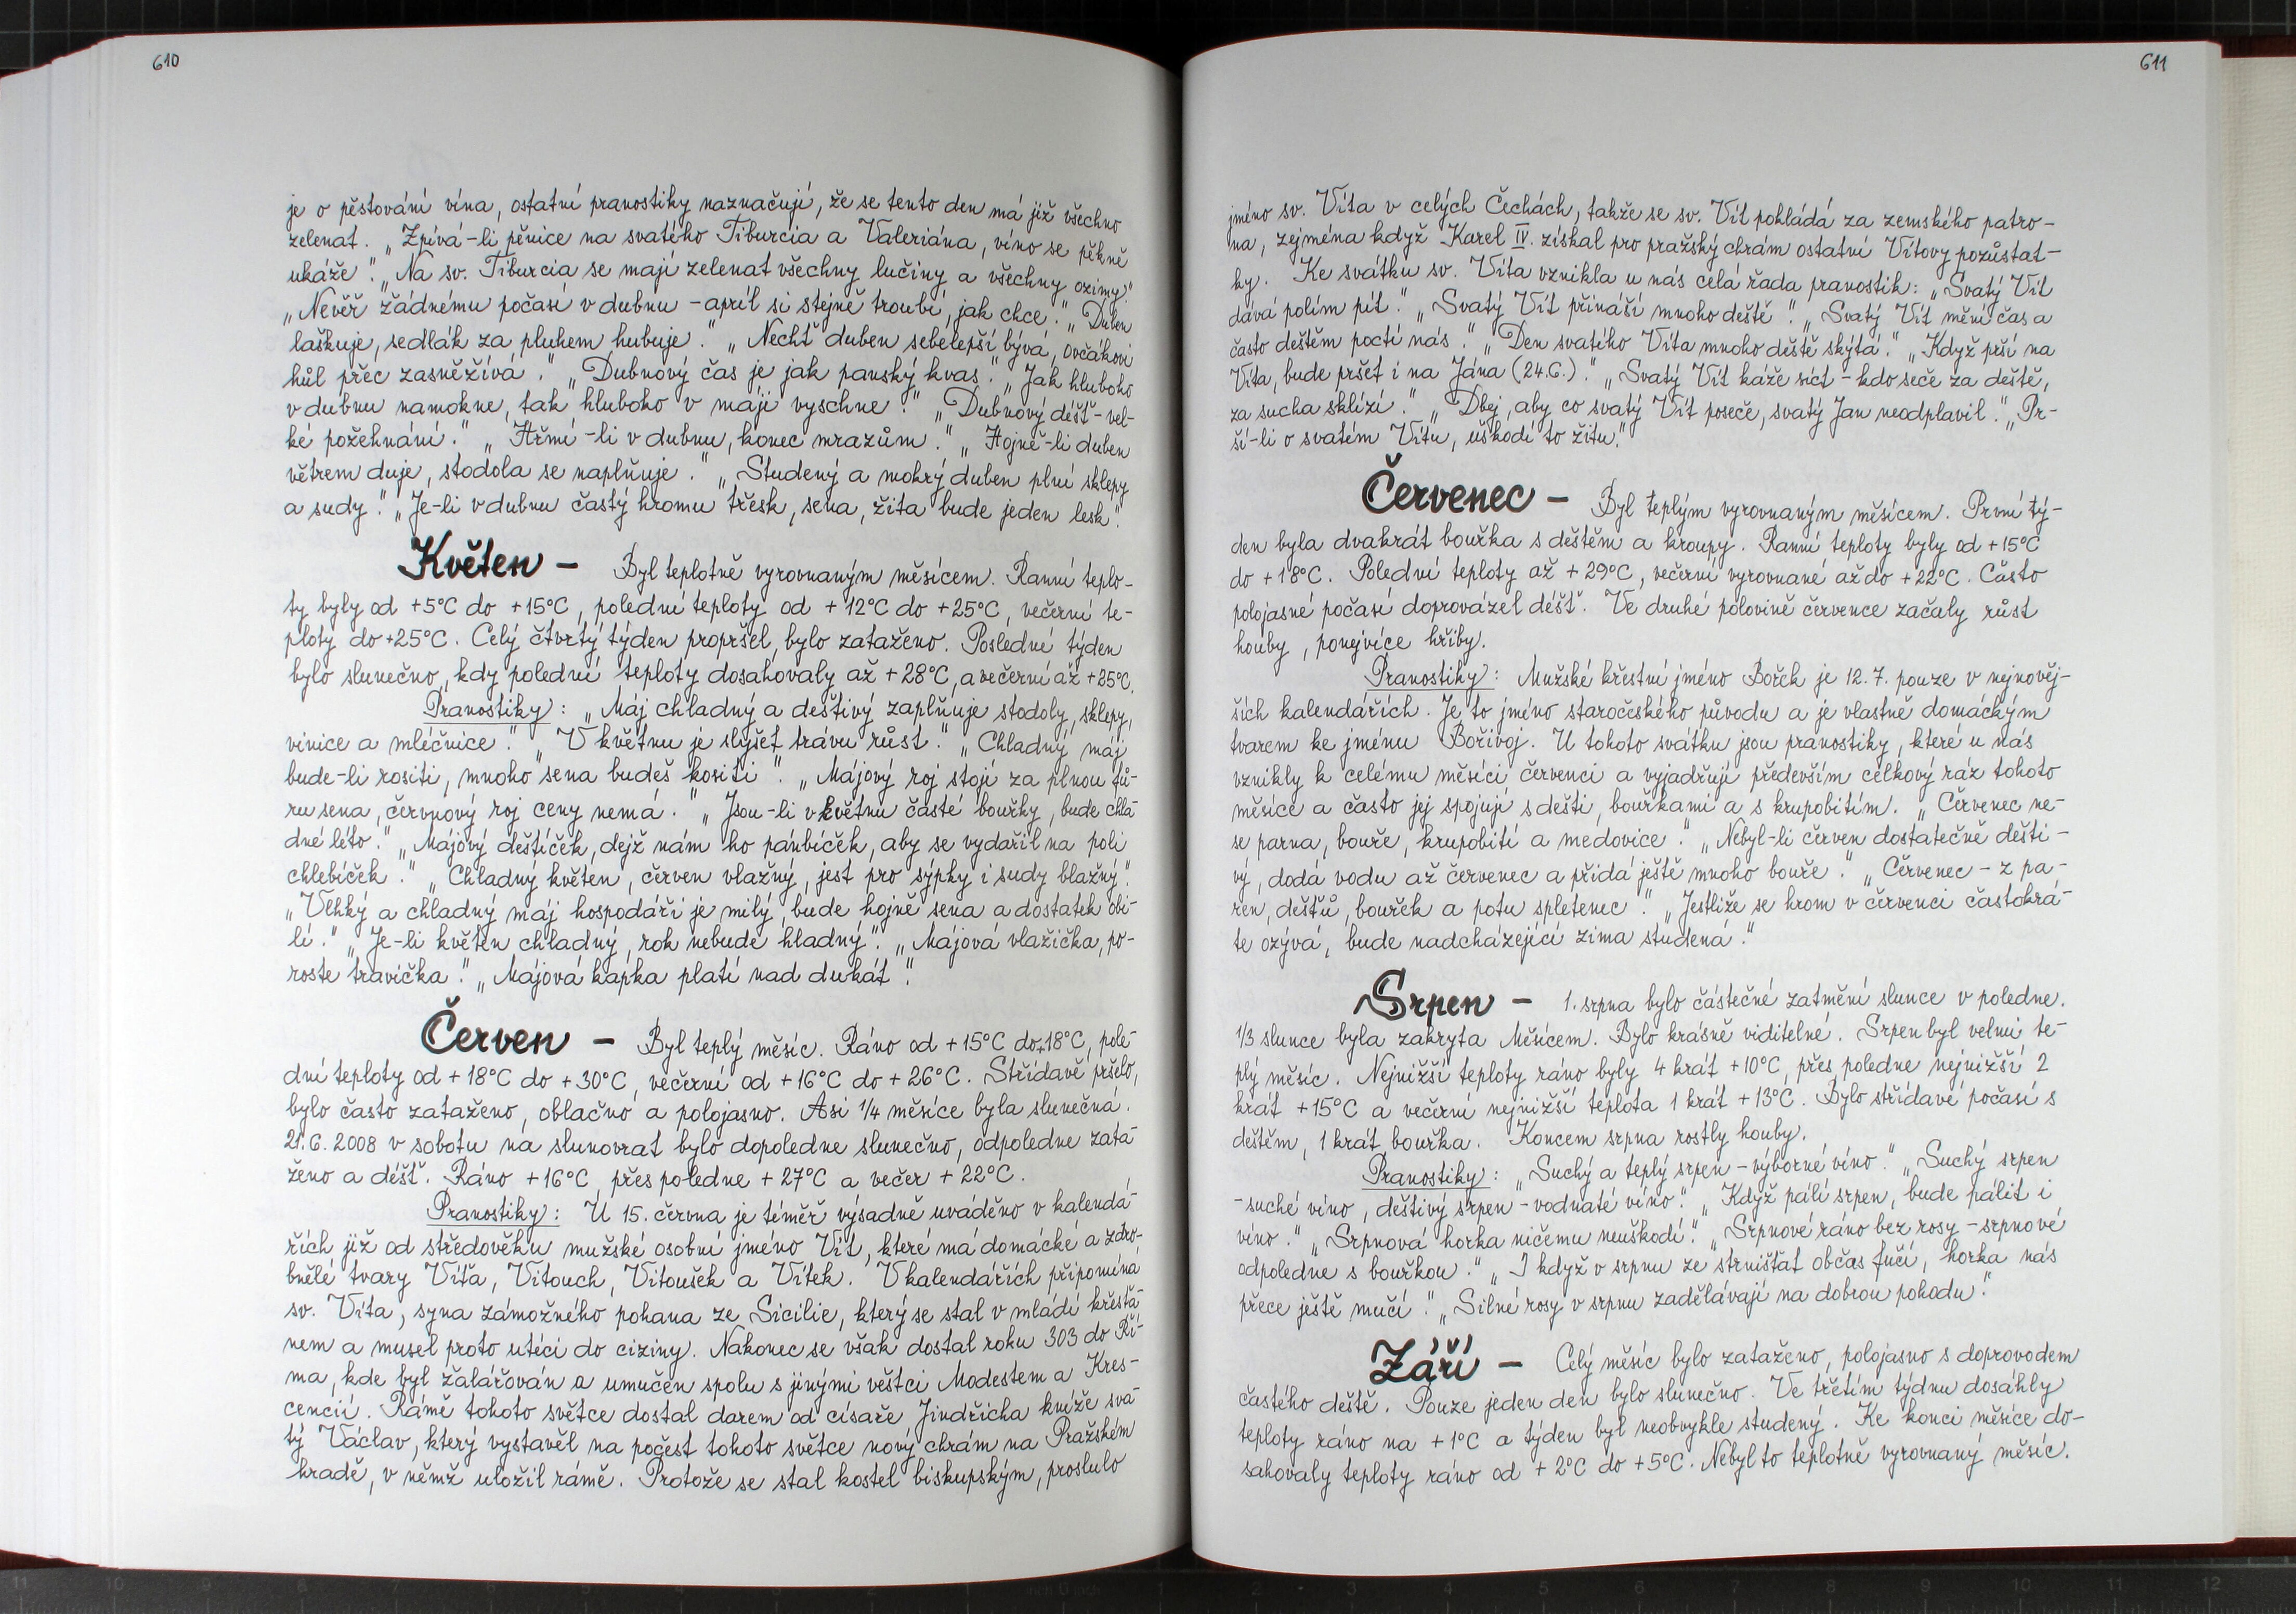 610
je o pěstování vína, ostatní pranostiky naznačují, že se tento den má již všechno
zelenat. „Zpívá-li pěnice na svatého Tiburcia a Valeriána, víno se pěkně
ukáže." „Na sv. Tiburcia se mají zelenat všechny lučiny a všechny ozimy."
„Nevěř žádnému počasí v dubnu – apríl si stejně troubí, jak chce." „Duben
laškuje, sedlák za pluhem hubuje." „Nechť duben sebelepší bývá, ovčákovi
hůl přec zasněžívá." „Dubnový čas je jak panský kvas." „Jak hluboko
v dubnu namokne, tak hluboko v máji vyschne." „Dubnový déšť – vel-
ké požehnání." „Hřmí-li v dubnu, konec mrazům." „Hojně-li duben
větrem duje, stodola se naplňuje." „Studený a mokrý duben plní sklepy
a sudy." „Je-li v dubnu častý hromu třesk, sena, žita bude jeden lesk."
Květen – Byl teplotně vyrovnaným měsícem. Ranní teplo-
ty byly od +5°C do +15°C, polední teploty od +12°C do +25°C, večerní te-
ploty do +25°C. Celý čtvrtý týden propršel, bylo zataženo. Poslední týden
bylo slunečno, kdy polední teploty dosahovaly až +28°C, a večerní až +25°C.
Pranostiky: „Máj chladný a deštivý zaplňuje stodoly, sklepy,
vinice a mléčnice." „V květnu je slyšet trávu růst." „Chladný máj
bude-li rositi, mnoho sena budeš kositi". „Májový roj stojí za plnou fů-
ru sena, červnový roj ceny nemá." „Jsou-li v květnu časté bouřky, bude chla-
dné léto." „Májový deštíček, dejž nám ho pánbíček, aby se vydařil na poli
chlebíček." „Chladny květen, červen vlažný, jest pro sýpky i sudy blažný."
„Vlhký a chladný máj hospodáři je milý, bude hojně sena a dostatek obi-
lí." „Je-li květen chladný, rok nebude hladný". „Májová vlažička, po-
roste travička." „Májová kapka platí nad dukát."
Červen – Byl teplý měsíc. Ráno od +15°C do +18°C, pole-
dní teploty od +18°C do +30°C, večerní od +16°C do +26°C. Střídavě pršelo,
bylo často zataženo, oblačno a polojasno. Asi 1/4 měsíce byla slunečná.
21.6. 2008 v sobotu na slunovrat bylo dopoledne slunečno, odpoledne zata-
ženo a déšť. Ráno +16°C, přes poledne +27°C a večer +22°C.
Pranostiky: U 15. června je téměř výsadně uváděno v kalendá-
řích již od středověku mužské osobní jméno Vít, které má domácké a zdro-
bnělé tvary Víťa, Vitouch, Vitoušek a Vítek. V kalendářích připomíná
sv. Víta, syna zámožného pohana ze Sicilie, který se stal v mládí křesťa-
nem a musel proto utéci do ciziny. Nakonec se však dostal roku 303 do Ří-
ma, kde byl žalářován a umučen spolu s jinými věštci Modestem a Kres-
cencií. Rámě tohoto světce dostal darem od císaře Jindřicha kníže sva-
tý Václav, který vystavěl na počest tohoto světce nový chrám na Pražském
hradě, v němž uložil rámě. Protože se stal kostel biskupským, proslulo
611
jméno sv. Víta v celých Čechách, takže se sv. Vít pokládá za zemského patro-
na, zejména když Karel IV. získal pro pražský chrám ostatní Vítovy pozůstat-
ky. Ke svátku sv. Víta vznikla u nás celá řada pranostik: „Svatý Vít
dává polím pít." „Svatý Vít přináší mnoho deště". „Svatý Vít mění čas a
často deštěm poctí nás." „Den svatého Víta mnoho deště skýtá." „Když prší na
Víta, bude pršet i na Jána (24.6.)." „Svatý Vít káže síct – kdo seče za deště,
za sucha sklízí." „Dbej, aby co svatý Vít poseče, svatý Jan neodplavil." „Pr-
ší-li o svatém Vítu, uškodí to žitu."
Červenec – Byl teplým vyrovnaným měsícem. První tý-
den byla dvakrát bouřka s deštěm a kroupy. Ranní teploty byly od +15°C
do +18°C. Polední teploty až +29°C, večerní vyrovnané až do +22°C. Často
polojasné počasí doprovázel déšť. Ve druhé polovině července začaly růst
houby, ponejvíce hřiby.
Pranostiky: Mužské křestní jméno Bořek je 12.7. pouze v nejnověj-
ších kalendářích. Je to jméno staročeského původu a je vlastně domáckým
tvarem ke jménu Bořivoj. U tohoto svátku jsou pranostiky, které u nás
vznikly k celému měsíci červenci a vyjadřují především celkový ráz tohoto
měsíce a často jej spojují s dešti, bouřkami a s krupobitím. „Červenec ne-
se parna, bouře, krupobití a medovice." „Nebyl-li červen dostatečně dešti-
vý, dodá vodu až červenec a přidá ještě mnoho bouře." „Červenec – z pa-
ren, dešťů, bouřek a potu spletenec." „Jestliže se hrom v červenci častokrá-
te ozývá, bude nadcházející zima studená."
Srpen – 1. srpna bylo částečné zatmění slunce v poledne.
1/3 slunce byla zakryta Měsícem. Bylo krásně viditelné. Srpen byl velmi te-
plý měsíc. Nejnižší teploty ráno byly 4 krát +10°C, přes poledne nejnižší 2
krát +15°C a večerní nejnižší teplota 1 krát +13°C. Bylo střídavé počasí s
deštěm, 1 krát bouřka. Koncem srpna rostly houby.
Pranostiky: „Suchý a teplý srpen – výborné víno." „Suchý srpen
-suché víno, deštivý srpen – vodnaté víno." „Když pálí srpen, bude pálit i
víno." „Srpnová horka ničemu neuškodí." „Srpnové ráno bez rosy – srpnové
odpoledne s bouřkou." „I když v srpnu ze strnišťat občas fučí, horka nás
přece ještě mučí." „Silné rosy v srpnu zadělávají na dobrou pohodu."
Září – Celý měsíc bylo zataženo, polojasno s doprovodem
častého deště. Pouze jeden den bylo slunečno. Ve třetím týdnu dosáhly
teploty ráno na +1°C a týden byl neobvykle studený. Ke konci měsíce do-
sahovaly teploty ráno od +2°C do +5°C. Nebyl to teplotně vyrovnaný měsíc.